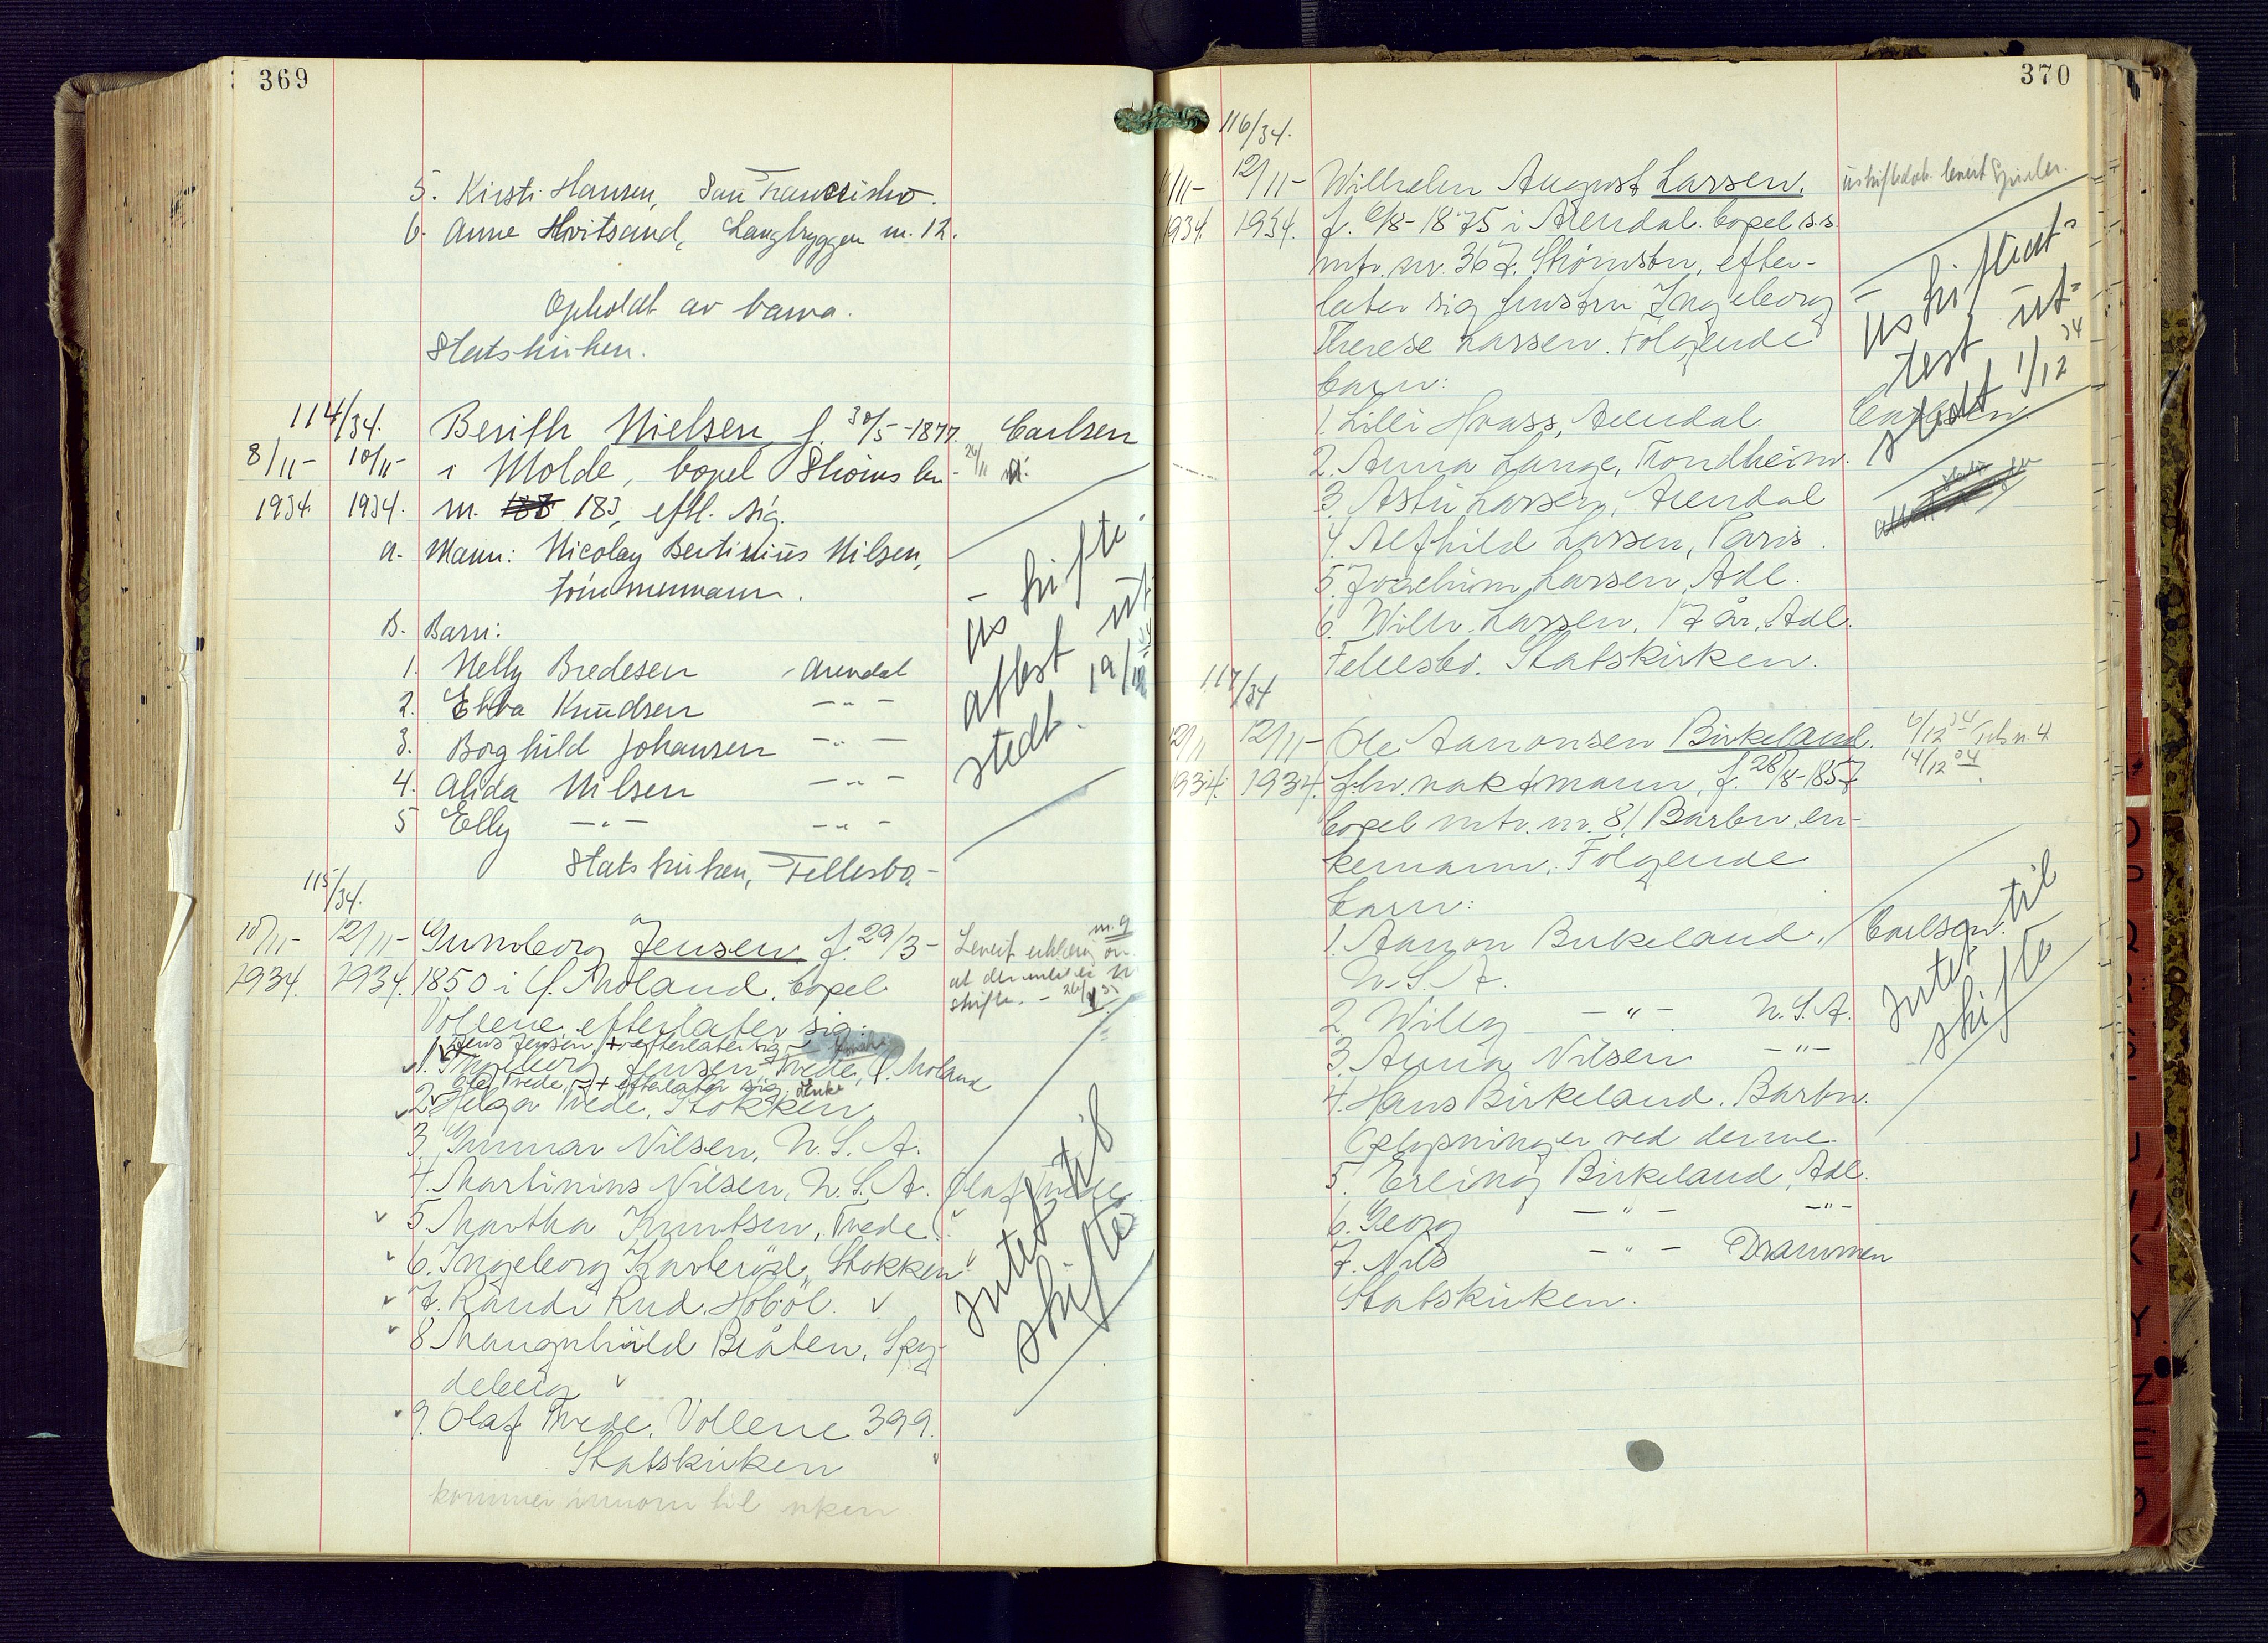 369
5. Kirsti Hansen, San Francisko.
6. Anne Hvitsand, Langbryggen m. 12.
Opholdt av barna.
Statskirken.
114/34.
8/11- 10/11- 1934. 1934.
Berith Nielsen f. 30/5-1877. Carlsen
i Molde, bopel Strømsbu- 26/11
m. 183, eftl. sig.
a. Mann: Nicolay Bertinius Nilsen,
tømmermann.
B. Barn:
1. Nelly Bredesen - Arendal
2. Ebba Knudsen -"-
3. Borghild Johansen -"-
4. Alida Nilsen -"-
5 Elly -"- -"-
Statskirken, Fellesbo.-
uskifte-
attest ut-
stedt. 19/12
115/34.
10/11- 12/11- Gunvborg Jensen f. 29/3-
1934. 1934. 1850 i Ø. Moland, bopel
Vollene efterlater sig:
1 Jens Jensen, + efterlater sig
1. Ingeborg Jensen Tvede, Ø. Moland
Olaf Tvede, + efterlater sig. Enke
2. Helga Tvede, Stokken,
3. Gunnar Nilsen, U.S.A.
4. Martinius Nilsen, U.S.A. Olaf Tvede.
5 Martha Knutsen, Tvede.
6. Ingeborg Stokken
7. Randi Rud. Hobøl.
8 Mangnhild Bråten, Spy-
deberg
9. Olaf Tvede, Vollene 399.
Statskirken
kommer innom til uken
m. 9
Levert erklæring om
at der intet er å
skifte. -
Intet til
skifte
370
116/34.
/11- 12/11- Wilhelm August Larsen. uskifteatt. levert
1934. 1934. f. 6/8-1875 i Arendal. bopel s.s.
mtr. nr. 367. Strømsbu, efter-
later sig hustru Ingeborg
Therese Larsen. Følgende
barn:
1. Lilli Hvass, Arendal. Carlsen
2. Anna Lange, Trondheim.
3. Astri Larsen, Arendal
4. Alfhild Larsen, Paris.
5. Joachim Larsen, Adl.
6. Wilh. Larsen, 17 år, Adl.
Fellesbo. Statskirken.
uskifteat-
test ut-
stedt 1/12 34
117/34
12/11 12/11- Ole Aanonsen Birkeland. 6/12 34
1934. 1934. fhv. vaktmann, f. 26/8-1857 14/12 34
bopel mtr. nr. 81, Barbu, en-
kemann. Følgende
barn:
1. Aanon Birkeland, Carlsen.
U.S.A.
2. Willy -"- U.S.A.
3. Anna Nilsen -"-
4. Hans Birkeland. Barbu.
Oplysninger ved denne.
5. Erling Birkeland, Adl.
6. Georg -"- -"-
7. Nils -"- Drammen
Statskirken.
Intet til
skifte